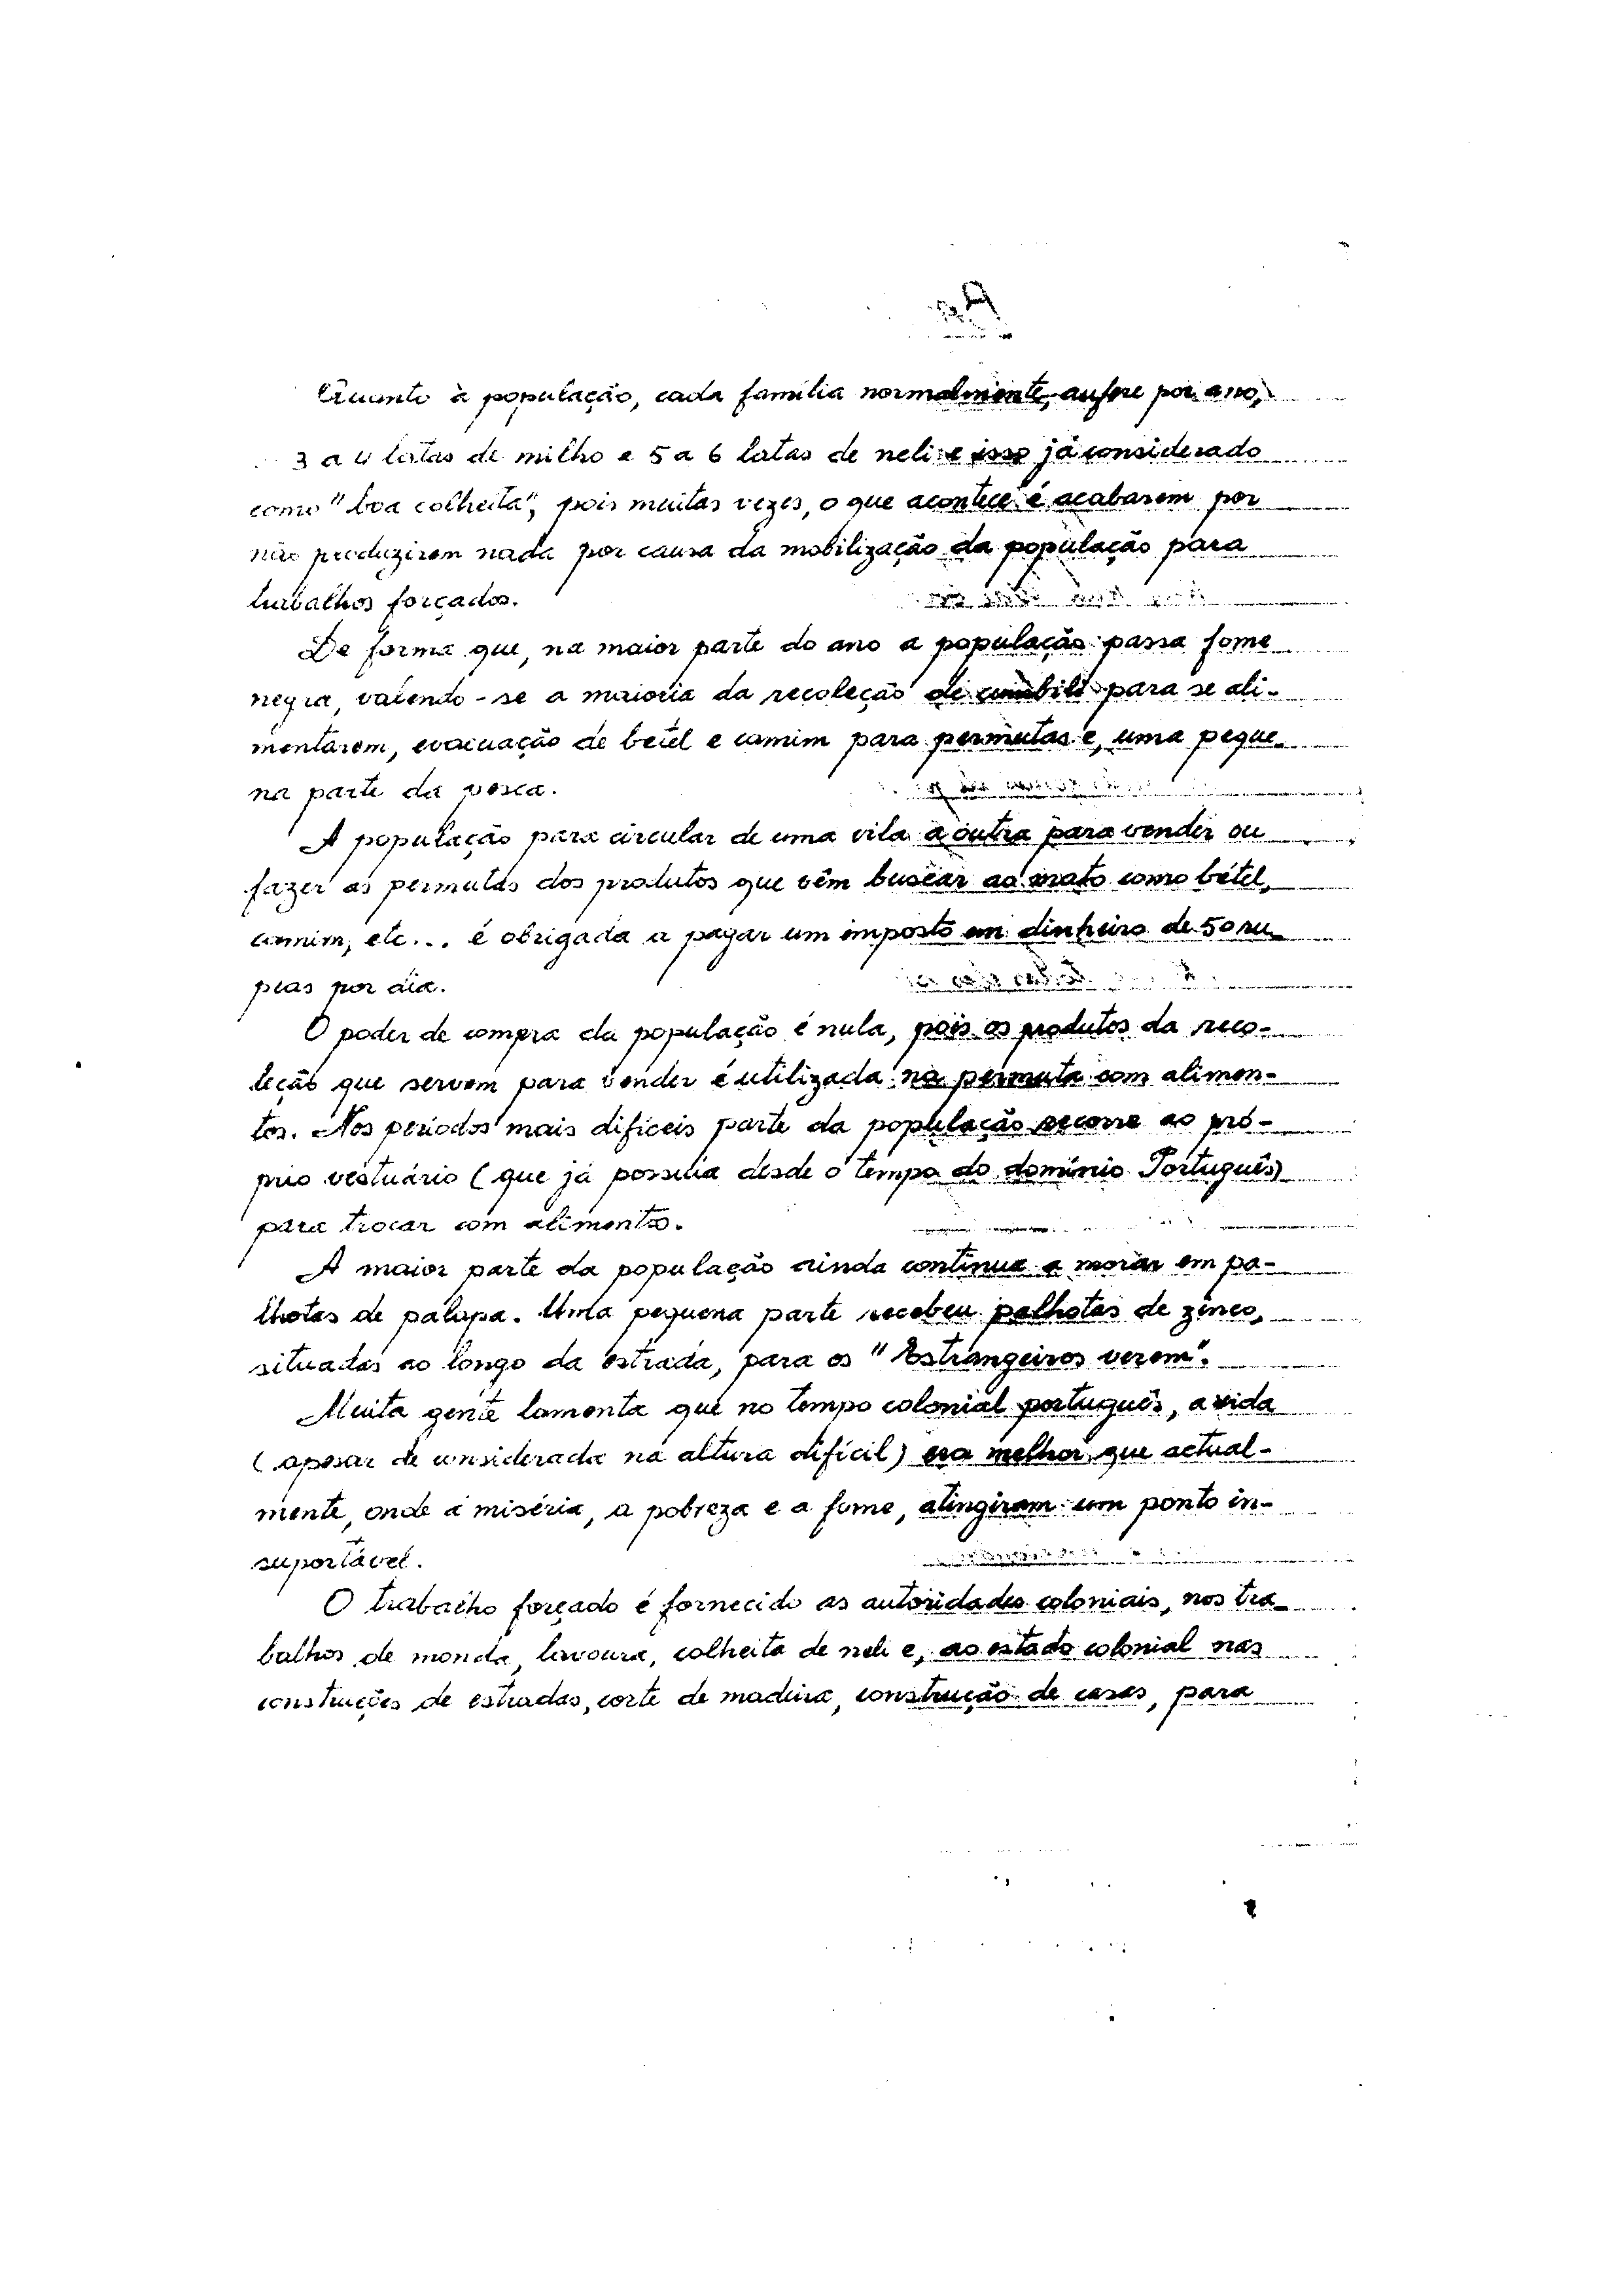 Quanto à população, cada família normalmente, aufere por ano,
3 a 4 latas de milho e 5 a 6 latas de neli e isso já considerado
como "boa colheita", pois muitas vezes, o que acontece é acabarem por
não produzirem nada por causa da mobilização da população para
trabalhos forçados.
De forma que, na maior parte do ano a população passa fome
negra, valendo-se a maioria da recoleção de para se ali-
mentarem, evacuação de betel e camim para permutas e, uma peque-
na parte da pesca.
A população para circular de uma vila a outra para vender ou
fazer as permutas dos produtos que vêm buscar ao mato como bétel,
camim, etc... é obrigada a pagar um imposto em dinheiro de 50 ru-
pias por dia.
O poder de compra da população é nula, pois os produtos da reco-
leção que servem para vender é utilizada na permuta com alimen-
tos. Nos períodos mais difíceis parte da população recorre ao pró-
prio vestuário (que já possuia desde o tempo do domínio Português)
para trocar com alimentos.
A maior parte da população ainda continua a morar em pa-
lhotas de palapa. Uma pequena parte recebeu palhotas de zinco,
situadas ao longo da estrada, para os "Estrangeiros verem".
Muita gente lamenta que no tempo colonial português, a vida
(apesar de considerada na altura difícil) era melhor que actual-
mente, onde a miséria, a pobreza e a fome, atingiram um ponto in-
suportável.
O trabalho forçado é fornecido as autoridades coloniais, nos tra-
balhos de monda, lavoura, colheita de neli e, ao estado colonial nas
construções de estradas, corte de madeira, construção de casas, para